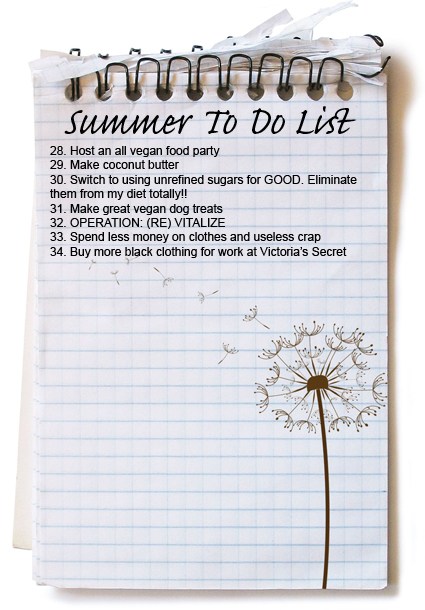 Summer To Do List
28. Host an all vegan food party
29. Make coconut butter
30. Switch to using unrefined sugars for GOOD. Eliminate
them from my diet totally!!
31. Make great vegan dog treats
32. OPERATION: (RE) VITALIZE
33. Spend less money on clothes and useless crap
34. Buy more black clothing for work at Victoria's Secret